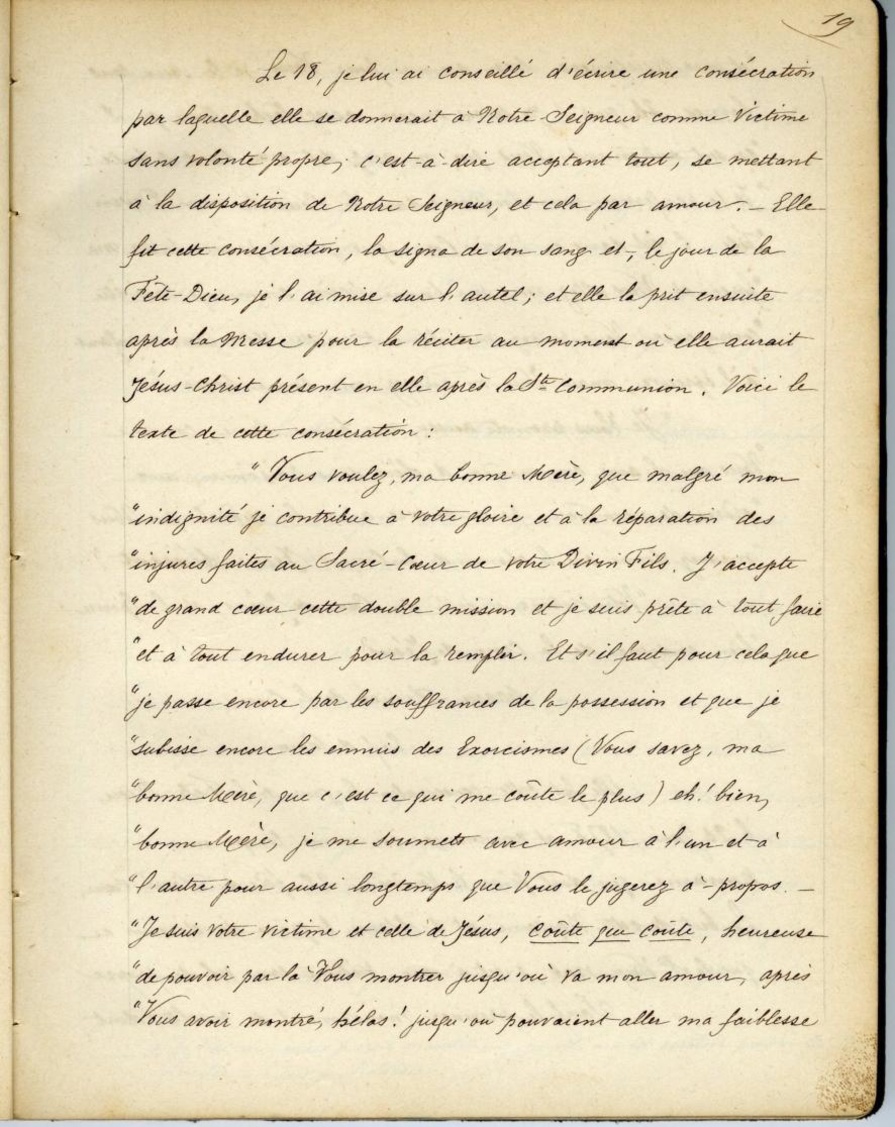 19
Le 18, je lui ai conseillé d'écrire une consécration
par laquelle elle se donnerait à Notre Seigneur comme Victime
sans volonté propre, c'est-à-dire acceptant tout, se mettant
à la disposition de Notre Seigneur, et cela par amour. — Elle
fit cette consécration, la signa de son sang et, le jour de la
Fête-Dieu, je l'ai mise sur l'autel; et elle la prit ensuite
après la Messe pour la réciter au moment où elle aurait
Jésus-Christ présent en elle après la Ste Communion. Voici le
texte de cette consécration :
"Vous voulez, ma bonne Mère, que malgré mon
"indignité je contribue à votre gloire et à la réparation des
"injures faites au Sacré-Cœur de votre Divin Fils. J'accepte
"de grand cœur cette double mission et je suis prête à tout faire
"et à tout endurer pour la remplir. Et s'il faut pour cela que
"je passe encore par les souffrances de la possession et que je
"subisse encore les ennuis des Exorcismes (Vous savez, ma
"bonne Mère, que c'est ce qui me coûte le plus) eh! bien,
"bonne Mère, je me soumets avec amour à l'un et à
"l'autre pour aussi longtemps que Vous le jugerez à-propos. —
"Je suis votre victime et celle de Jésus, coûte que coûte, heureuse
"de pouvoir par là Vous montrer jusqu'où va mon amour, après
"Vous avoir montré, hélas! jusqu'où pouvaient aller ma faiblesse